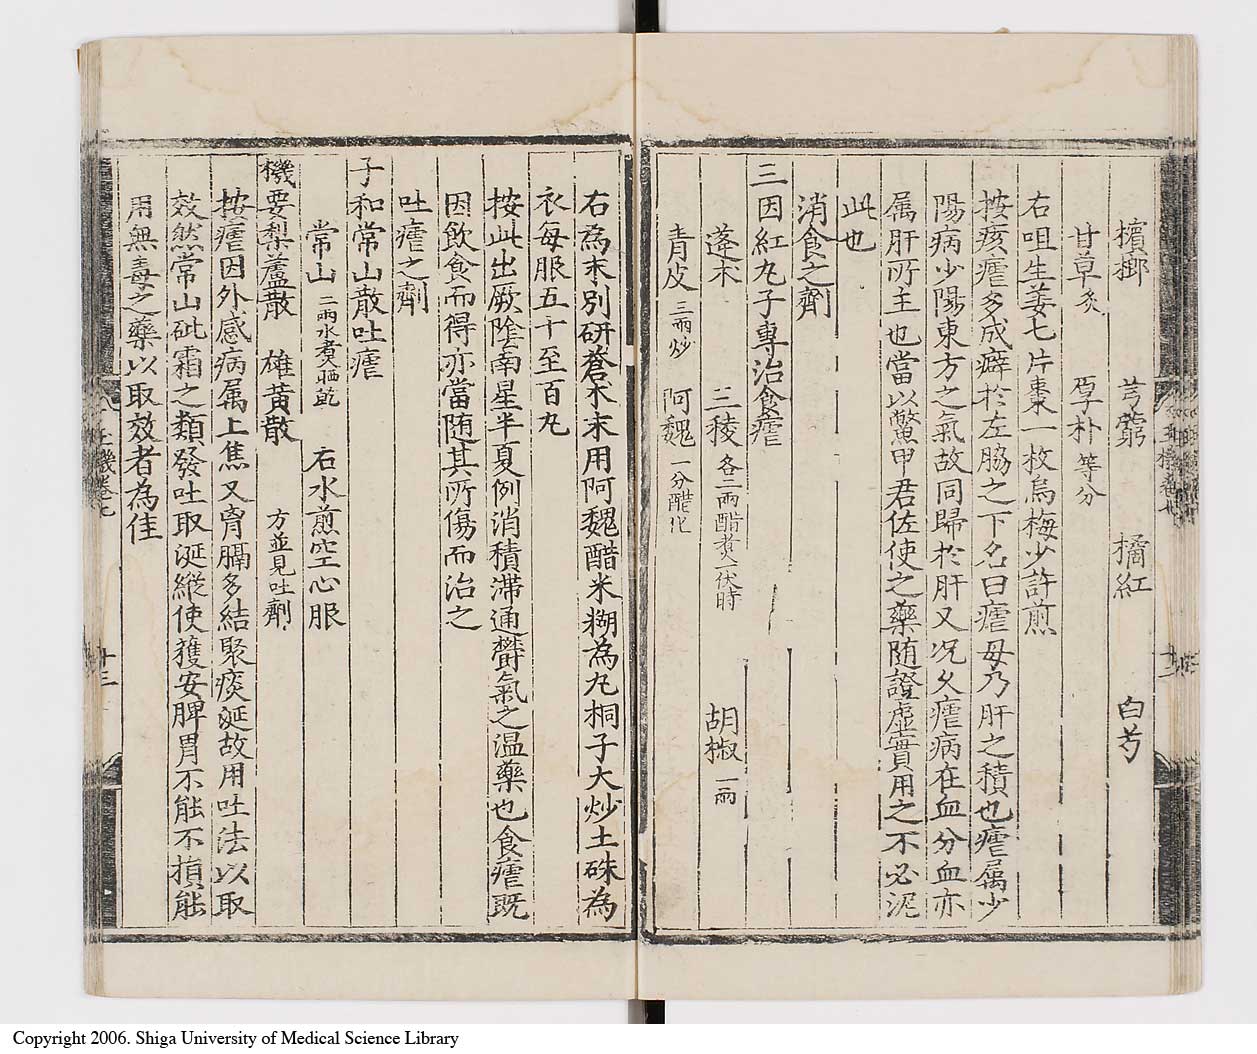 檳榔 芎藭 橘紅 白芍
甘草炙 厚朴等分
右咀生姜七片棗一枚烏梅少許煎
按痎瘧多成癖於左脇之下名曰瘧母乃肝之積也瘧属少
陽病少陽東方之氣故同歸於肝又况久瘧病在血分血亦
属肝所主也當以鱉甲君佐使之藥随證虛實用之不必泥
此也
消食之劑
三因紅丸子專治食瘧
蓬朮 三稜各二兩醋煮一伏時 胡椒一兩
青皮三兩炒 阿魏一分醋化
右為末別研蒼朮末用阿魏醋米糊為丸桐子大炒土硃為
衣每服五十至百丸
按此出厥陰南星半夏例消積滯通欝氣之温藥也食瘧既
因飲食而得亦當随其所傷而治之
吐瘧之劑
子和常山散吐瘧
常山二兩水煮晒乾 右水煎空心服
機要梨蘆散 雄黃散 方並見吐劑
按瘧因外感病属上焦又膏膈多結聚痰涎故用吐法以取
效然常山砒霜之類發吐取涎縱使獲安脾胃不能不損能
用無毒之藥以取效者為佳
玉機卷七
十三
Copyright 2006. Shiga University of Medical Science Library